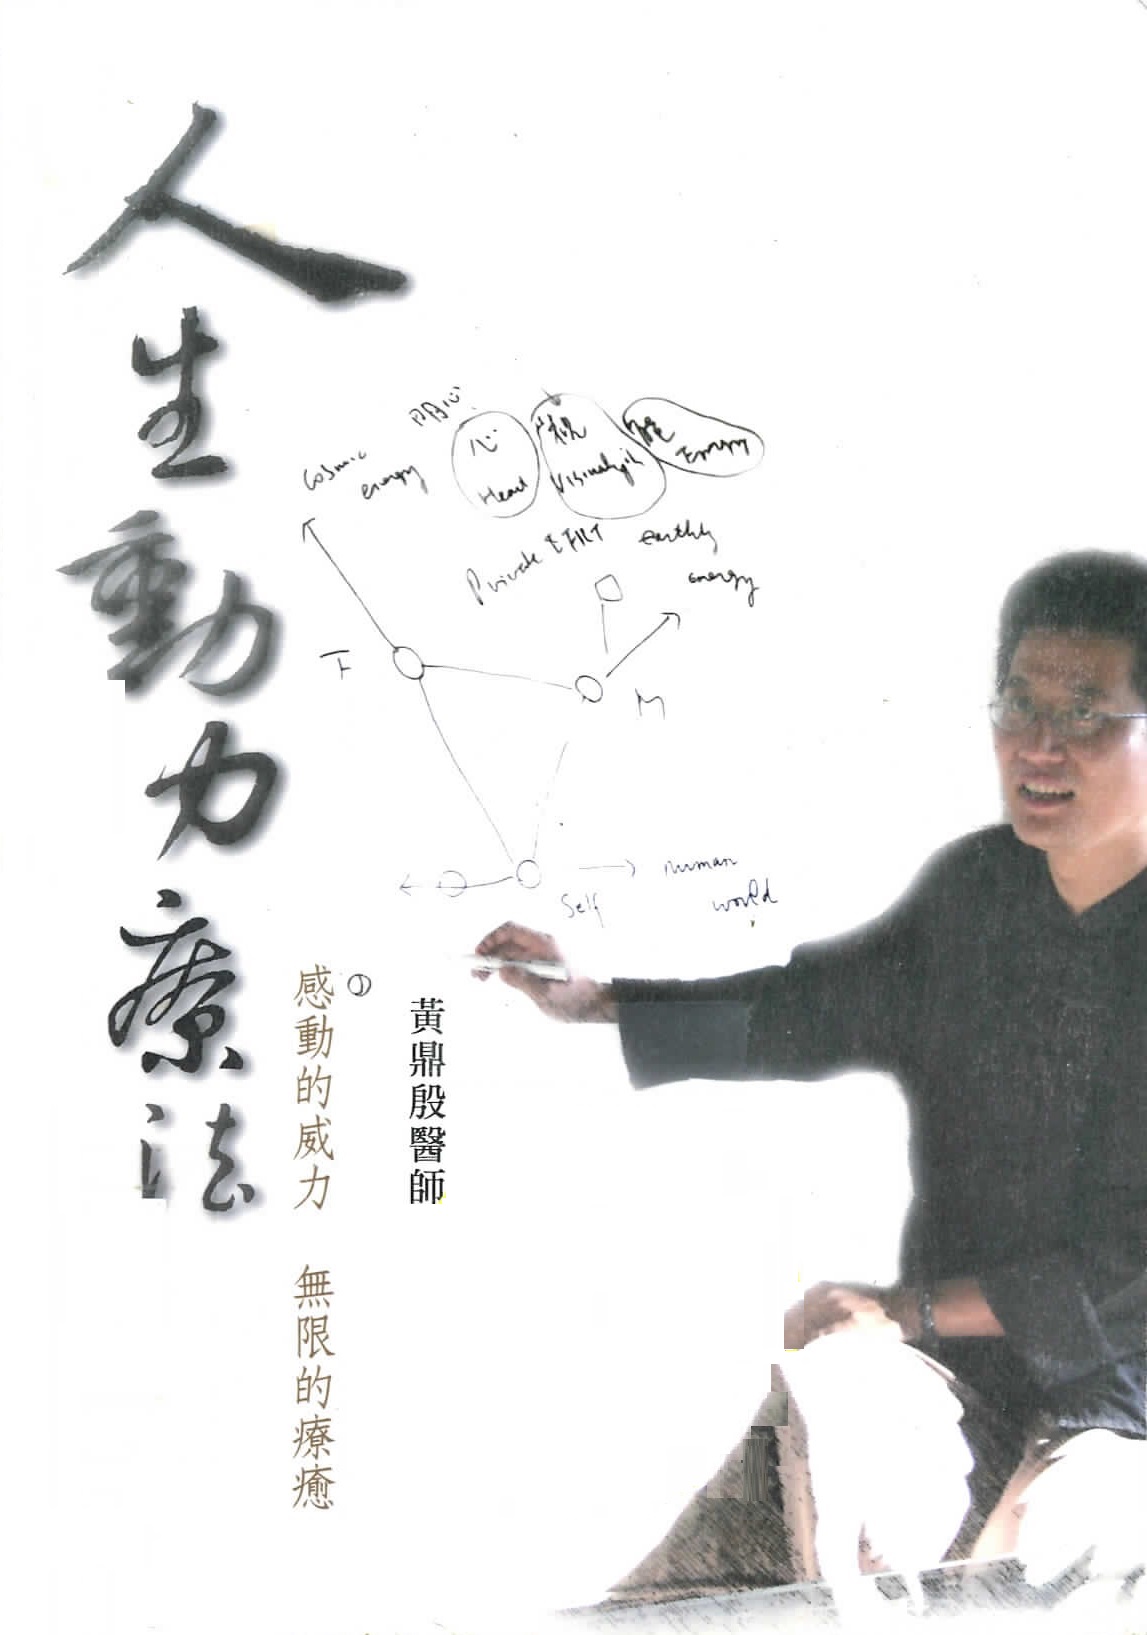 人生動力療法
感動的威力 無限的療癒
黃鼎殷醫師
Cosmic
energy
心
Heart
Energy
Private
earthly
energy
F
M
Self
human
world